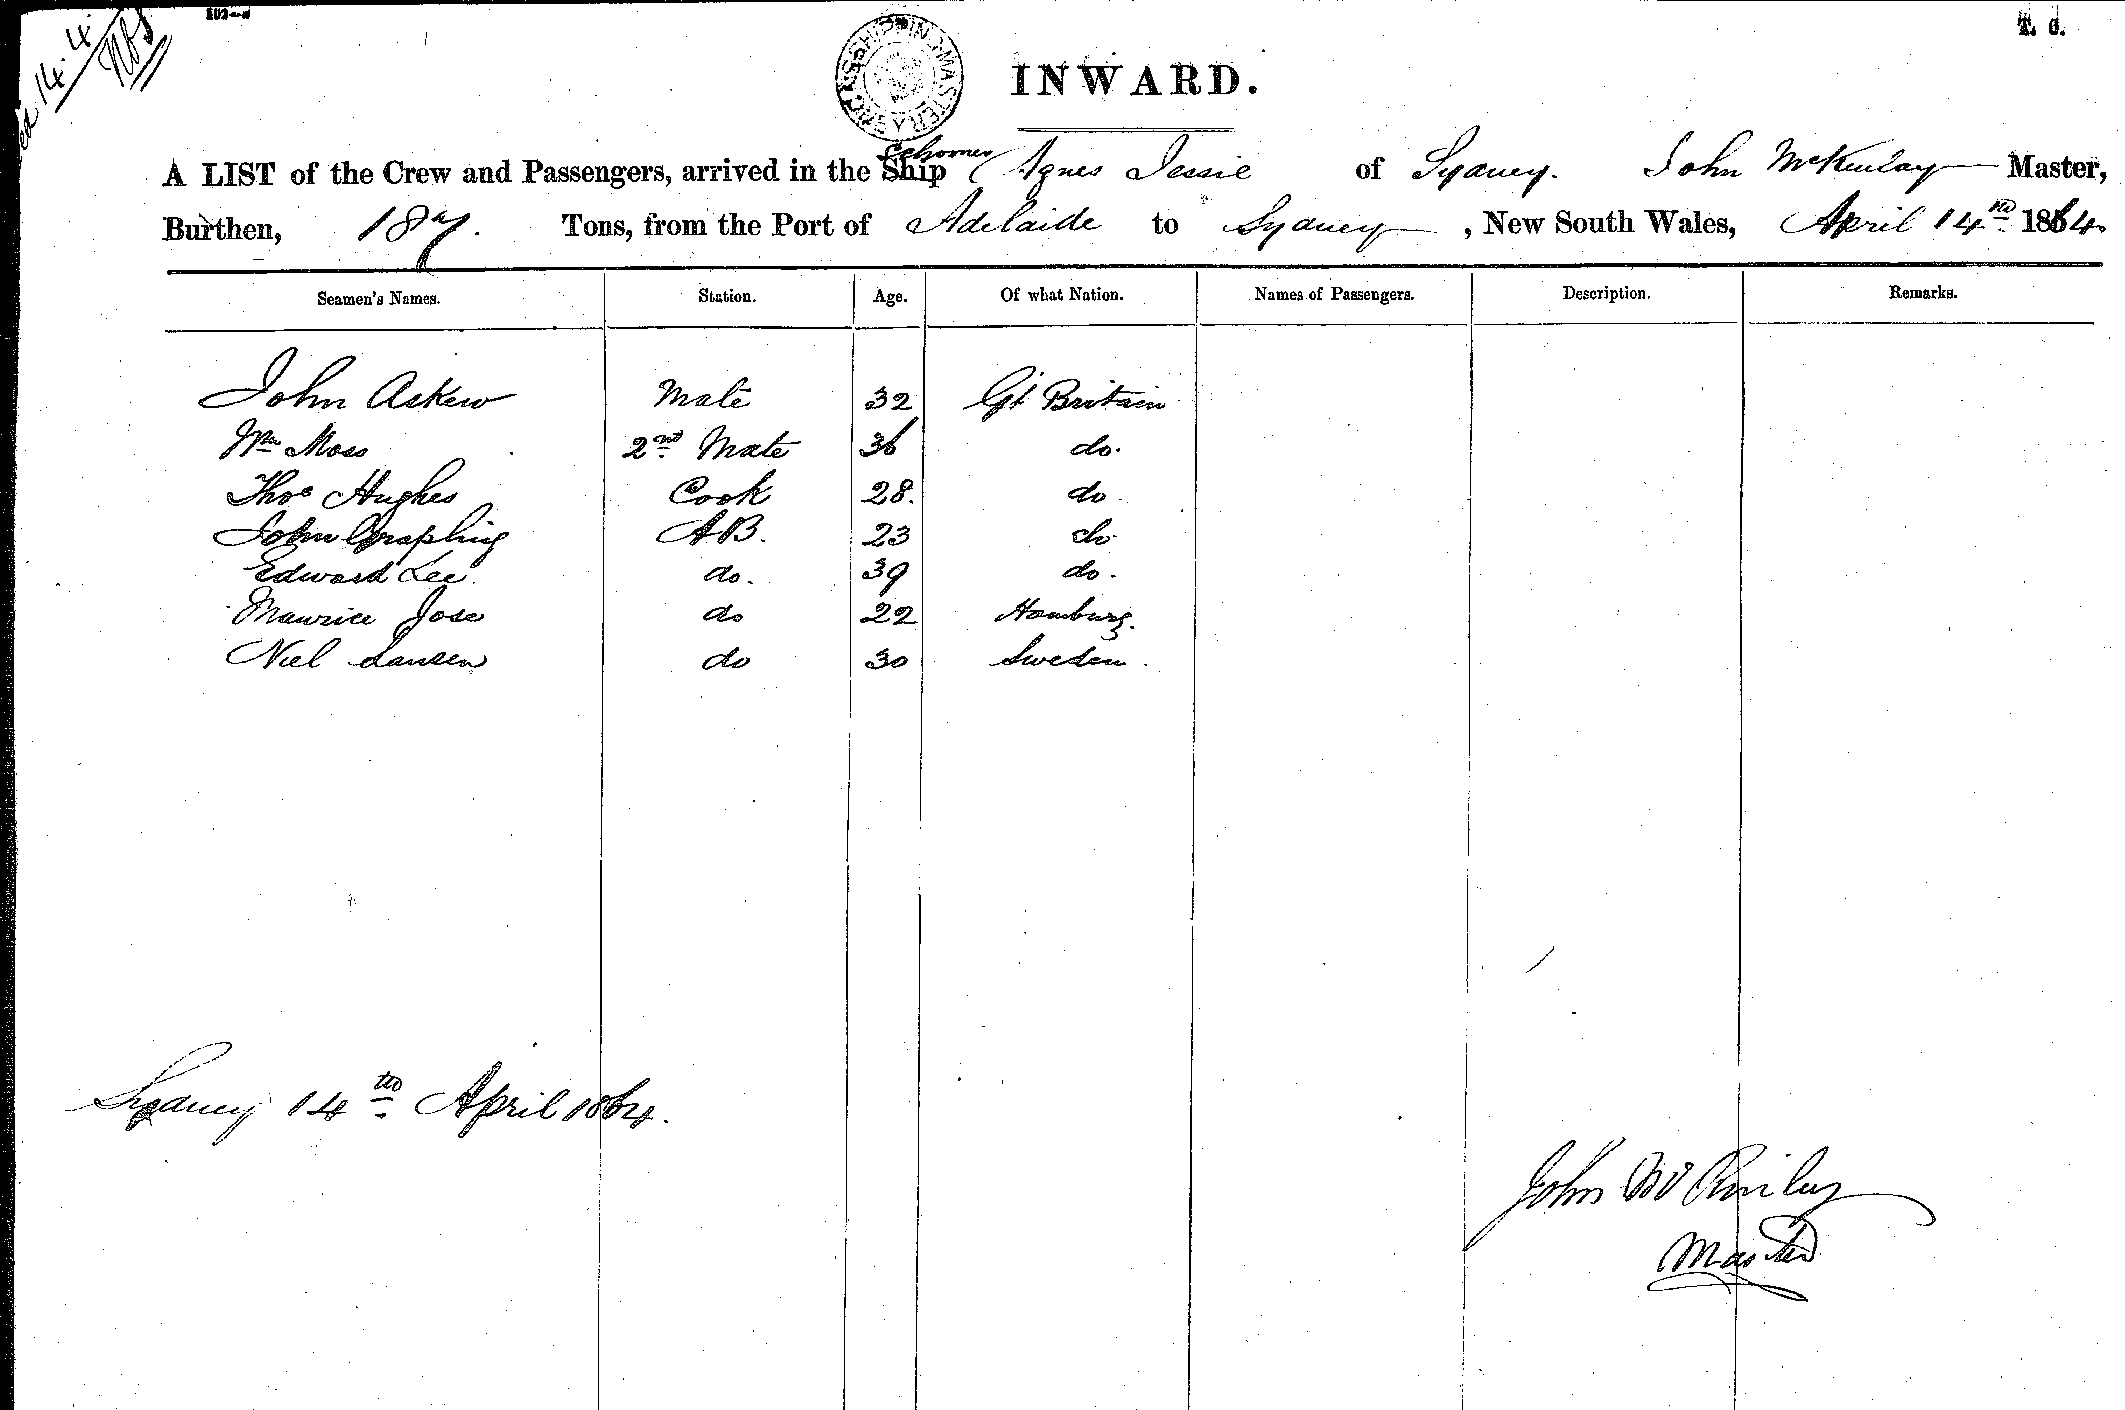 T. C.
14.4
SHIPPING MASTER'S
INWARD.
schooner
A LIST of the Crew and Passengers, arrived in the Ship Agnes Jessie of Sydney. John McKinlay Master,
Burthen, 187. Tons, from the Port of Adelaide to Sydney, New South Wales, April 14th 1864.
Seamen's Names. Station. Age. Of what Nation. Names of Passengers. Description. Remarks.
John Askew Mate 32 Gt Britain
Wm Moss 2nd Mate 36 do.
Thos Hughes Cook 28. do
John Grapling AB. 23 do
Edward Lee do. 39 do.
Maurice Jose do 22 Hamburg.
Niel Jansen do 30 Sweden.
Sydney 14th April 1864.
John McKinlay
Master